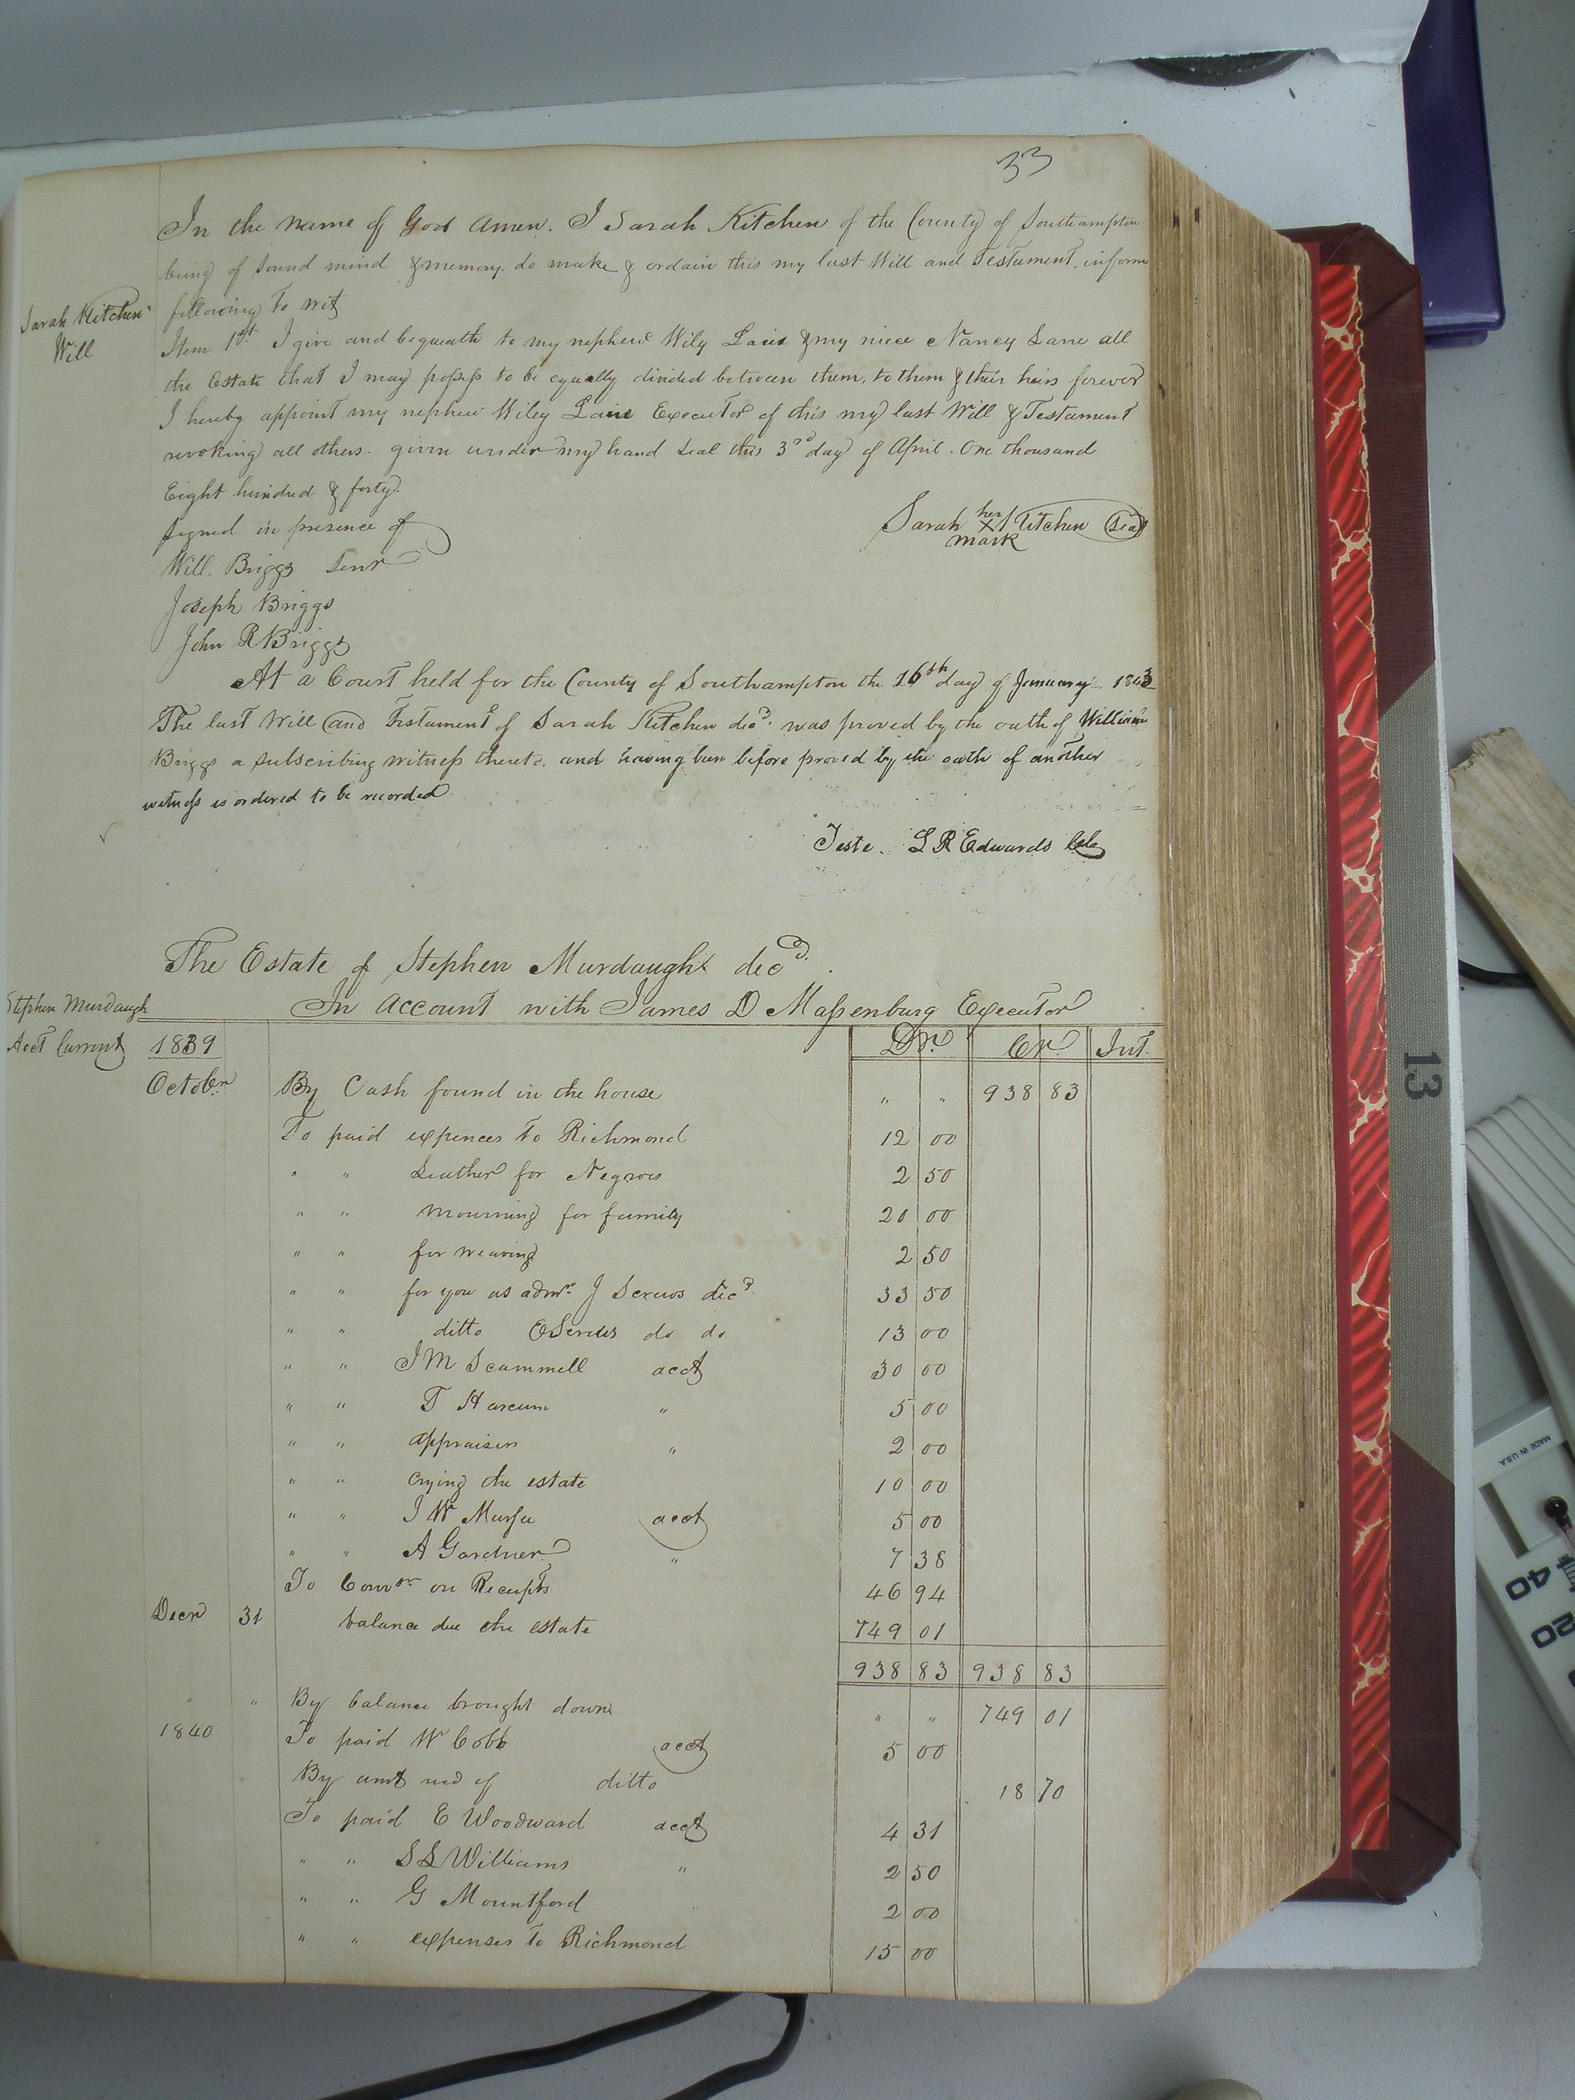 33
In the name of God Amen. I Sarah Kitchen of the County of Southampton
being of sound mind & memory do make & ordain this my last Will and Testament, in form
following To wit
Sarah Kitchen
Will
Item 1st I give and bequeath to my nephew Wily Lain & my niece Nancy Lane all
the Estate that I may possess to be equally divided between them, to them & their heirs forever
I hereby appoint my nephew Wiley Lain Executor of this my last Will & Testament
revoking all others. given under my hand seal this 3rd day of April. One thousand
Eight hundred & forty.
Signed in presence of
Sarah her X mark Kitchen (Seal)
Will. Briggs Senr
Joseph Briggs
John R Briggs
At a Court held for the County of Southampton the 16th day of January 1843
The last Will and Testament of Sarah Kitchen decd. was proved by the oath of William
Briggs a subscribing witness thereto. and having been before proved by the oath of another
witness is ordered to be recorded
Teste. L R Edwards Clk
The Estate of Stephen Murdaugh decd.
In account with James D Massenburg Executor
Stephen Murdaugh
Acct Current
1839 Dr. Cr. Int.
Octobr By Cash found in the house " " 938 83
To paid expences to Richmond 12 00
" " Leather for Negroes 2 50
" " mourning for family 20 00
" " for weaving 2 50
" " for you as admr. J Screws decd. 33 50
" " ditto E Screws do do 13 00
" " J M Scammell acct 30 00
" " T Harcum " 5 00
" " appraisers " 2 00
" " crying the estate 10 00
" " J W Murfee acct 5 00
" " A Gardner " 7 38
To Comsn on Receipts 46 94
Decr 31 balance due the estate 749 01
938 83 938 83
" " By balance brought down " " 749 01
1840 To paid W Cobb acct 5 00
By amt recd of ditto 18 70
To paid E Woodward acct 4 31
" " S L Williams " 2 50
" " G Mountford 2 00
" " expenses to Richmond 15 00
13
MADE IN USA
40
20